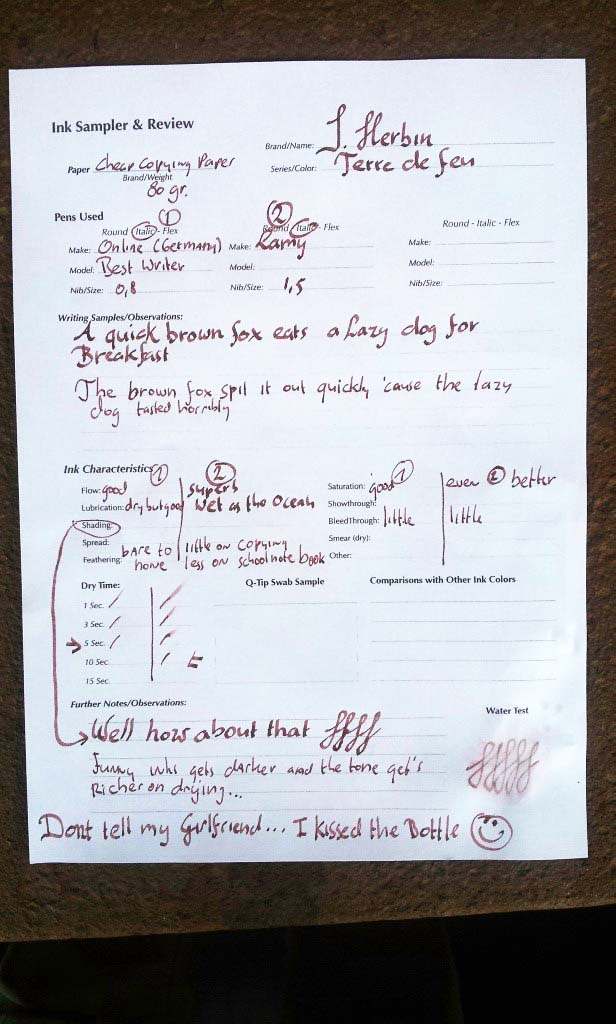 Ink Sampler & Review
Brand/Name: J. Herbin
Paper Cheap Copying Paper
Series/Color: Terre de feu
Brand/Weight
80 gr.
Pens Used
1 2
Round - Italic - Flex Round - Italic - Flex Round - Italic - Flex
Make: Online (Germany) Make: Lamy Make:
Model: Best Writer Model: Model:
Nib/Size: 0,8 Nib/Size: 1,5 Nib/Size:
Writing Samples/Observations:
A quick brown fox eats a lazy dog for
Breakfast
The brown fox spit it out quickly 'cause the lazy
dog tasted horribly
Ink Characteristics 1 2 1 2
Flow: good superb Saturation: good even better
Lubrication: dry but good Wet as the Ocean Showthrough:
Shading: BleedThrough: little little
Spread: Smear (dry):
Feathering: bare to none little on copying less on schoolnote book Other:
Dry Time: Q-Tip Swab Sample Comparisons with Other Ink Colors
1 Sec.
3 Sec.
→ 5 Sec.
10 Sec.
15 Sec.
Further Notes/Observations: Water Test
Well hows about that ffff
Funny inks gets darker and the tone get's
Richer on drying...
fffff
Dont tell my Girlfriend... I kissed the Bottle